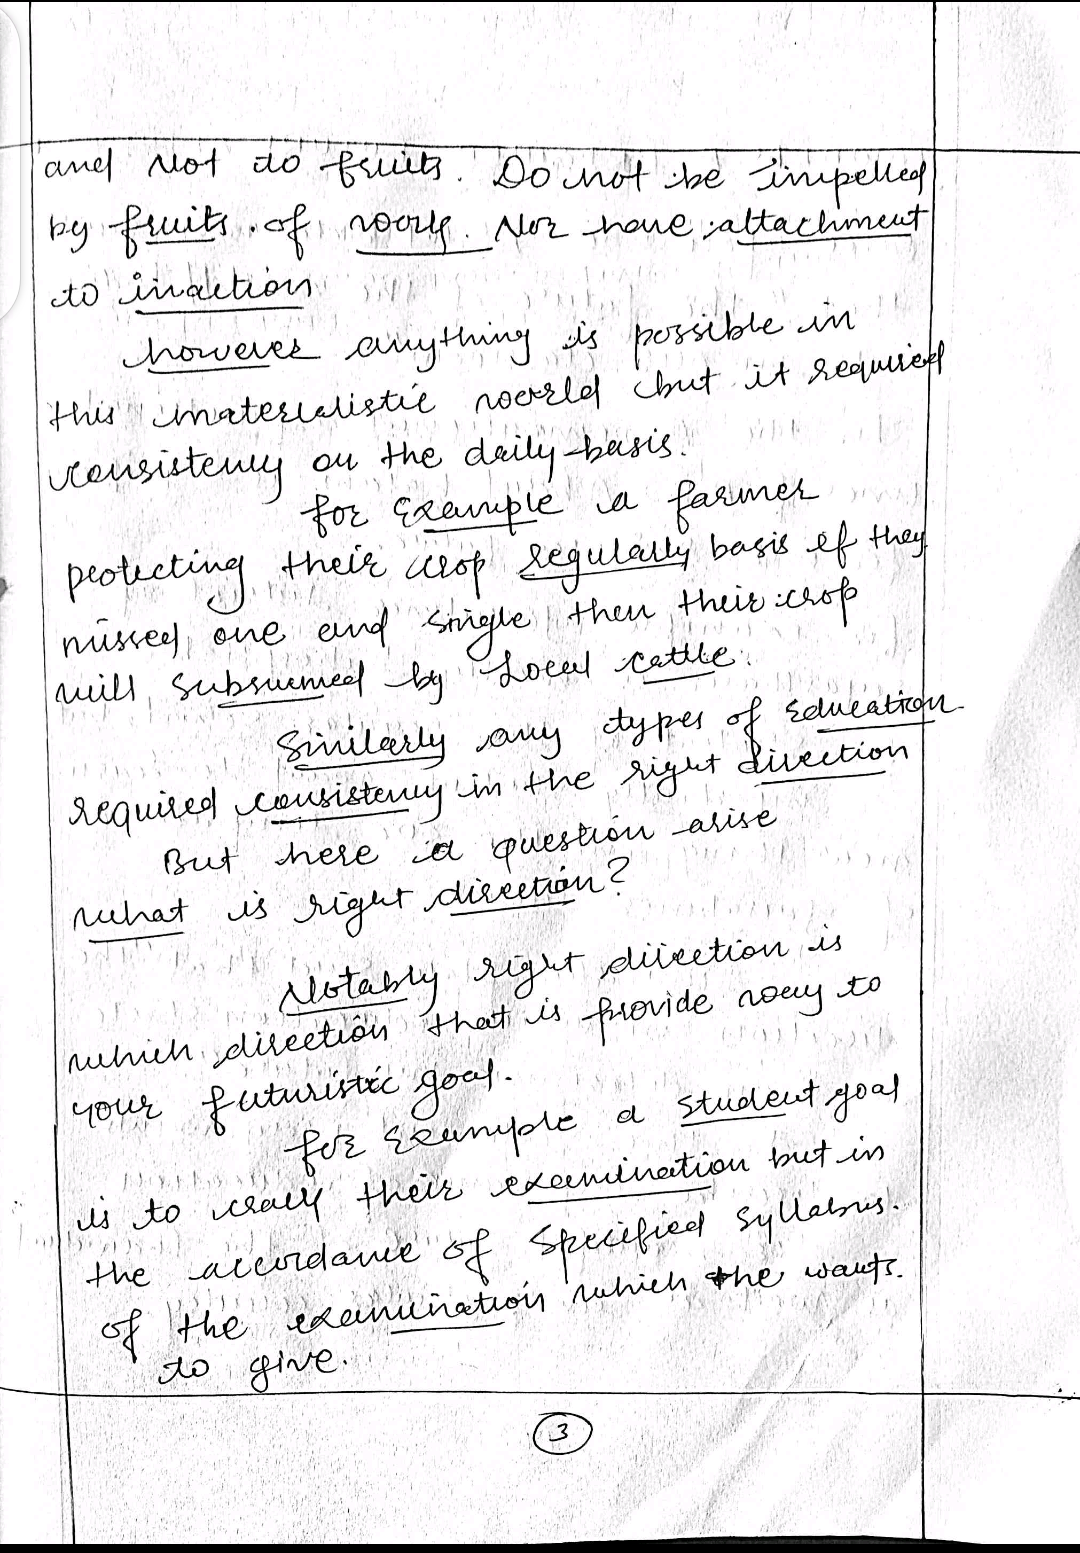 and Not to fruits. Do not be impelled
by fruits of work. Nor have attachment
to inaction
however anything is possible in
this materialistic world but it required
consistency on the daily basis.
for Example a farmer
protecting their crop regularly basis if they
missed one and single then their crop
will subsumed by Local cattle.
Similarly any types of Education
required consistency in the right direction
But here a question arise
what is right direction?
Notably right direction is
which direction that is provide way to
your futuristic goal.
for Example a student goal
is to crack their examination but in
the accordance of Specified Syllabus.
of the examination which the wants.
to give.
3